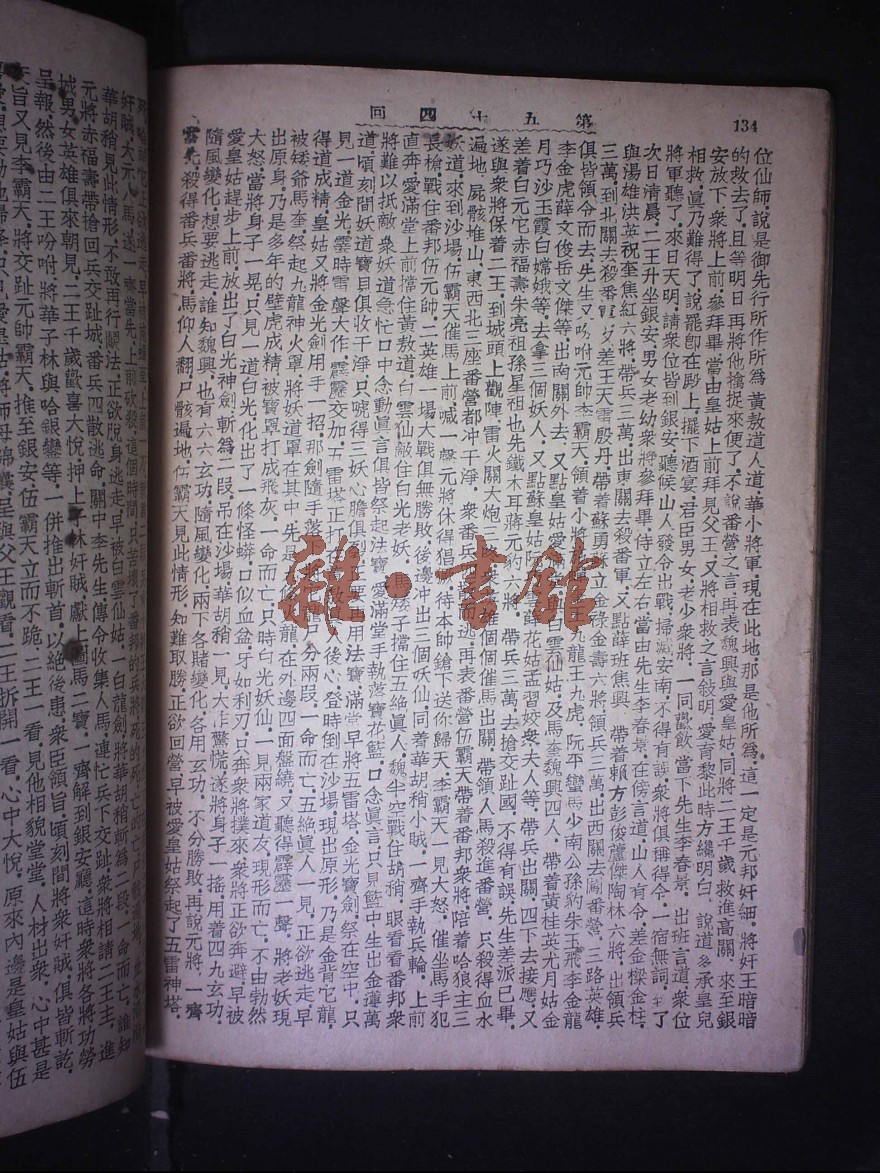 134
第五十四回
位仙師說是御先行所作所為黃敖道人道華小將軍現在此地那是他所為這一定是元邦奸細將奸王暗暗
的救去了且等明日再將他擒捉來便了不說番營之言再表魏興與愛皇姑同將二王千歲救進高關來至銀
安放下衆將上前參拜畢當由皇姑上前拜見父王又將相救之言敍明愛育黎此時方纔明白說道多承皇兒
相救真乃難得了說罷卽在殿上擺下酒宴君臣男女老少衆將一同歡飲當下先生李春景出班言道衆位
將軍聽了來日天明請衆位皆到銀安聽候山人發令出戰掃滅安南不得有誤衆將俱得令一宿無詞
次日清晨二王升坐銀安男女老幼衆將參拜畢侍立左右當由先生李春景在傍言道山人有令差金樑金柱
與湯雄洪英祝奎焦紅六將帶兵三萬出東關去殺番軍又點薛班焦興帶着賴方彭俊蘆傑陶林六將出領兵
三萬到北關去殺番軍差王天雷殷丹帶着蘇勇蘇立金祿金壽六將領兵三萬出西關去番營三路英雄
俱皆領令而去先生又吩咐元帥李霸天領着小將九龍王九虎阮平蠻馬少南公孫豹朱玉飛李金龍
李金虎薛文俊岳文傑等出南關外去又點皇姑愛白雲仙姑及馬奎魏興四人帶着黃桂英尤月姑金
月巧沙玉霞白嫦娥等去拿三個妖人又點蘇皇姑花姑孟習姣衆夫人等帶兵出關四下去接應又
差着白元它赤福壽朱亮祖孫星祖也先鐵木耳蔣元豹六將帶兵三萬去搶交趾國不得有誤先生差派已畢
遂與衆將保着二王到城頭上觀陣雷火關大炮三個個催馬出關帶領人馬殺進番營只殺得血水
遍地屍骸堆山東西北三座番營都冲干淨衆番兵再表番營伍霸天帶着番邦衆將陪着哈狼主三
妖道來到沙場伍霸天催馬上前喊一聲元將休得猖待本帥鎗下送你歸天李霸天一見大怒催坐馬手犯
長槍戰住番邦伍元帥二英雄一場大戰俱無勝敗後邊冲出三個妖仙同着華胡稍小賊一齊手執兵輪上前
直奔愛滿堂上前擋住黃敖道白雲仙敵住白光老妖馬矮子擋住五絕真人魏半空戰住胡稍眼看看番邦衆
將難以抵敵衆妖道急忙口中念動真言俱皆祭起法寶愛滿堂手執落寶花籃口念真言只見籃中生出金薄萬
道頃刻間妖道寶目俱收干淨只唬得三妖心膽俱用法寶滿堂早將五雷塔金光寶劍祭在空中只
見一道金光雲時雪聲大作霹靂交加五雷塔正打後心登時倒在沙場現出原形乃是金背它龍
得道成精皇姑又將金劍用手一招那劍隨手落分兩段一命而亡五絕真人一見正欲逃走早
被矮爺馬奎祭起九龍神火罩將妖道罩在其中先是龍在外邊四面盤繞又聽得霹靂一聲將老妖現
出原身乃是多年的壁虎成精被寶罩打成飛灰一命而亡只時白光妖仙一見兩家道友現形而亡不由勃然
大怒當將身子一晃只見一道白光化出了一條怪蟒口似血盆牙如利刃只奔衆將撲來衆將正欲奔避早被
愛皇姑趕步上前放出了白光神劍斬為二段吊在沙場華胡稍一見大非驚慌遂將身子一搖用着四九玄功
隨風變化想要逃走誰知魏興也有六六玄功隨風變化兩下各賭變化各用玄功不分勝敗再說元將一齊
殺得番兵番將馬仰人翻尸骸遍地伍霸天見此情形知難取勝正欲回營早被愛皇姑祭起了五雷神塔
奸賊大元人馬遂一齊當先上前砍殺這個時間只苦壞了番邦的兵將死的死亡的亡
華胡稍見此情形不敢再行鬭法正欲脫身逃走早被白雲仙姑一白龍劍將華胡稍斬為二段一命而亡誰知
元將赤福壽帶搶回兵交趾城番兵四散逃命關中李先生傳令收集人馬連忙兵下交趾衆將相請二王主進
城男女英雄俱來朝見二王千歲歡喜大悅押上子林奸賊獻圖馬二寶一齊解到銀安廳這時衆將各將功勞
呈報然後由二王吩咐將華子林與哈銀鑾等一併推出斬首以絕後患衆臣領旨頃刻間將衆奸賊俱皆斬訖
旨又見李霸天將交趾元帥霸天推至銀安伍霸天立而不跪二王一看見他相貌堂堂人材出衆心中甚是
呈與父王觀看二王拆開一看心中大悅原來內邊是皇姑與伍
雜·書館